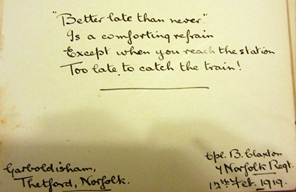 "Better late than never"
Is a comforting refrain
Except when you reach the station
Too late to catch the train!
Garboldisham,
Thetford, Norfolk.
Cpl. B. Claxton
Norfolk Regt.
12th Feb. 1919.